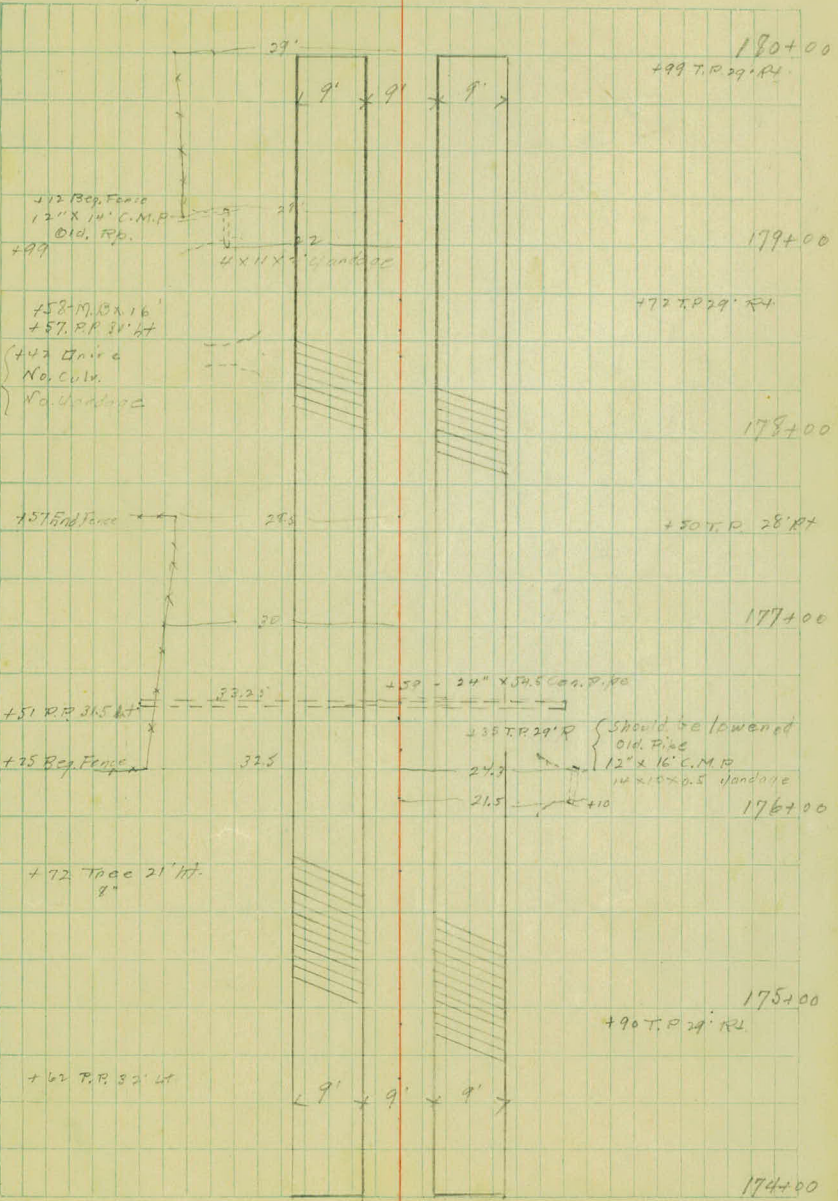 29'
180+00
+99 T.P. 29' Rt
9' 9' 9'
+12 Beg. Fence
12" X 14' C.M.P
Old. Rp.
+99
22
179+00
+58-M.B X 16'
+57. P.P. 31' Lt
+72 T.P 29' Rt
+42 Drive
No. Culv.
No. Yardage
178+00
+57 End Fence
28.5
+50 T.P. 28' Rt
30
177+00
33.25
+50 - 24" X 54.5 Con. Pipe
+51 P.P. 31.5 Lt
+35 T.P. 29' R
Should be lowered
Old. Pipe
12" X 16' C.M.P
14 x 10 x 0.5 Yardage
+25 Beg. Fence
32.5
24.3
21.5
+10
176+00
+72 Tree 21' Lt.
8"
175+00
+90 T.P 29' Rt
+62 P.P. 32' Lt
9' 9' 9'
174+00